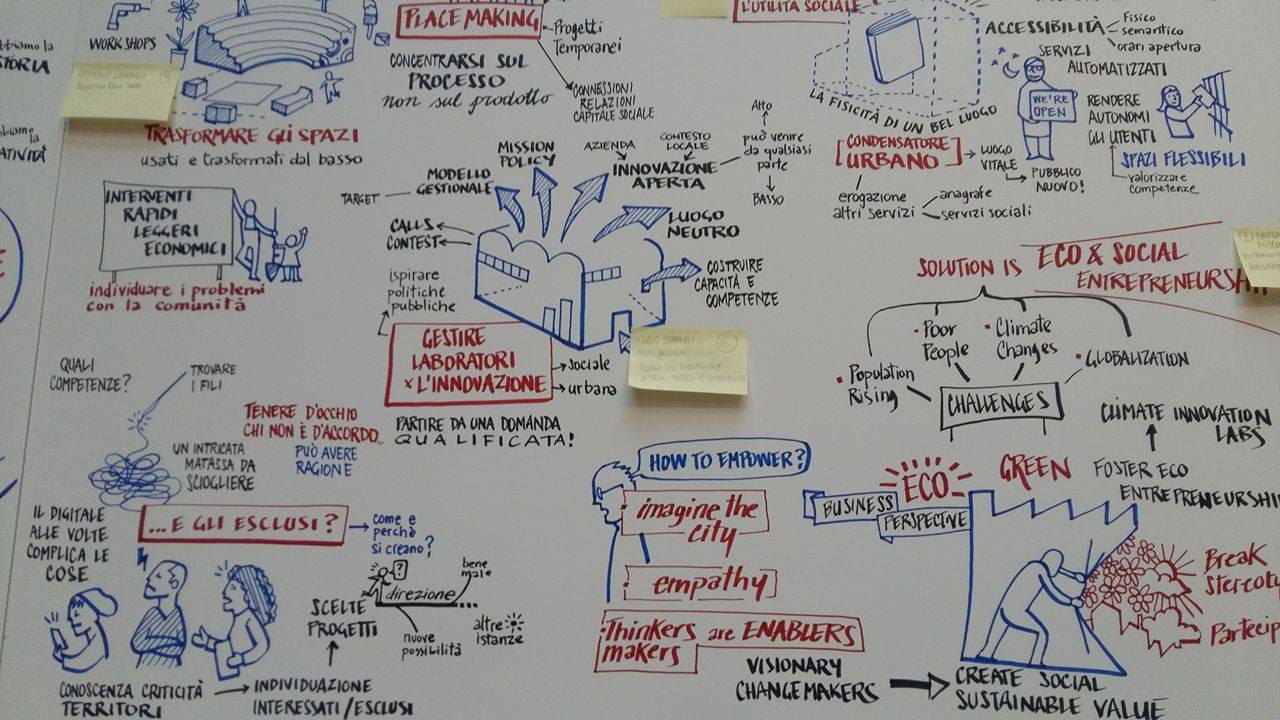 WORKSHOPS
bbiamo la
STORIA
TRASFORMARE GLI SPAZI
usati e trasformati dal basso
INTERVENTI
RAPIDI
LEGGERI
ECONOMICI
individuare i problemi
con la comunità
PLACE MAKING
Progetti
Temporanei
CONCENTRARSI SUL
PROCESSO
non sul prodotto
CONNESSIONI
RELAZIONI
CAPITALE SOCIALE
MISSION
POLICY
AZIENDA
CONTESTO
LOCALE
INNOVAZIONE
APERTA
Alto
può venire
da qualsiasi
parte
BASSO
TARGET
MODELLO
GESTIONALE
CALLS
CONTEST
LUOGO
NEUTRO
COSTRUIRE
CAPACITÀ E
COMPETENZE
ispirare
politiche
pubbliche
GESTIRE
LABORATORI
x L'INNOVAZIONE
sociale
urbana
PARTIRE DA UNA DOMANDA
QUALIFICATA!
6
L'UTILITÀ SOCIALE
LA FISICITÀ DI UN BEL LUOGO
ACCESSIBILITÀ
Fisico
semantico
orari apertura
SERVIZI
AUTOMATIZZATI
WE'RE
OPEN
RENDERE
AUTONOMI
GLI UTENTI
SPAZI FLESSIBILI
valorizzare
competenze
CONDENSATORE
URBANO
LUOGO
VITALE
PUBBLICO
NUOVO!
erogazione
altri servizi
anagrafe
servizi sociali
SOLUTION IS ECO & SOCIAL
ENTREPRENEURSHI
Poor
People
Climate
Changes
GLOBALIZATION
Population
Rising
CHALLENGES
CLIMATE INNOVATION
LABS
FOSTER ECO
ENTREPRENEURSHI
QUALI
COMPETENZE?
TROVARE
I FILI
UN INTRICATA
MATASSA DA
SCIOGLIERE
TENERE D'OCCHIO
CHI NON È D'ACCORDO...
PUÒ AVERE
RAGIONE
IL DIGITALE
ALLE VOLTE
COMPLICA LE
COSE
... E GLI ESCLUSI?
come e
perchè
si creano?
SCELTE
PROGETTI
?
direzione
bene
male
nuove
possibilità
altre
istanze
CONOSCENZA CRITICITÀ
TERRITORI
INDIVIDUAZIONE
INTERESSATI/ESCLUSI
HOW TO EMPOWER?
imagine the
city
empathy
Thinkers are ENABLERS
makers
VISIONARY
CHANGEMAKERS
BUSINESS
ECO
PERSPECTIVE
GREEN
Break
Stereoty
Partecip
CREATE SOCIAL
SUSTAINABLE VALUE